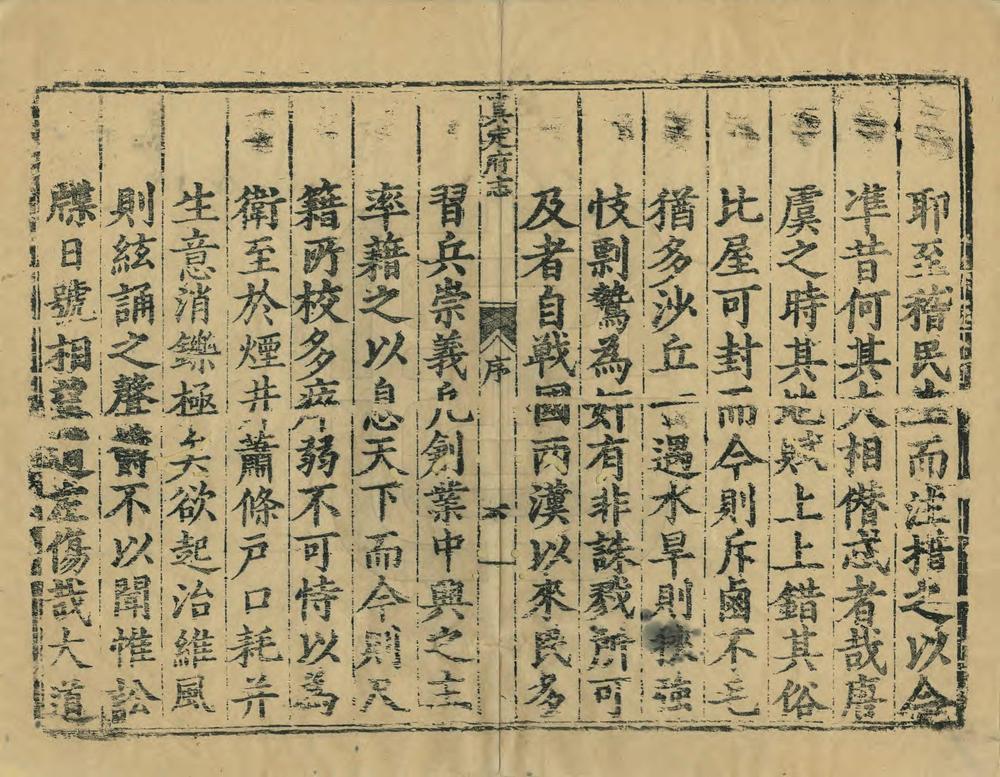 耶至稽民生而注措之以今
准昔何其大相僭忒者哉唐
虞之時其地賦上上錯其俗
比屋可封而今則斥鹵不毛
猶多沙丘一遇水旱則獷強
忮剽鷙為奸有非誅戮所可
及者自戰國两漢以來民多
真定府志
序
六
習兵崇義凡創業中興之主
率藉之以息天下而今則尺
籍所校多疲弱不可恃以為
衛至於煙井蕭條戶口耗并
生意消鑠極矣欲起治維風
則絃誦之聲不以聞惟訟
牒日號相望道左傷哉大道